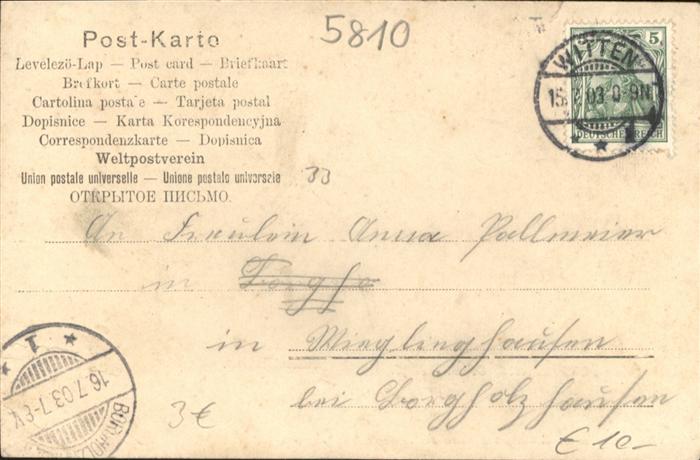 5810
Post-Karte
Levelező-Lap — Post card — Briefkaart
Brefkort — Carte postale
Cartolina postale — Tarjeta postal
Dopisnice — Karta Korespondencyjna
Correspondenzkarte — Dopisnica
Weltpostverein
Union postale universelle — Unione postale universale
ОТКРЫТОЕ ПИСЬМО.
33
5
WITTEN
15.7.03.8-9N
1
DEUTSCHES REICH
An Fräulein Anna Pallmeier
in
in
bei Borgholzhausen
I
16.7.03.7-8V.
3€
€ 10-